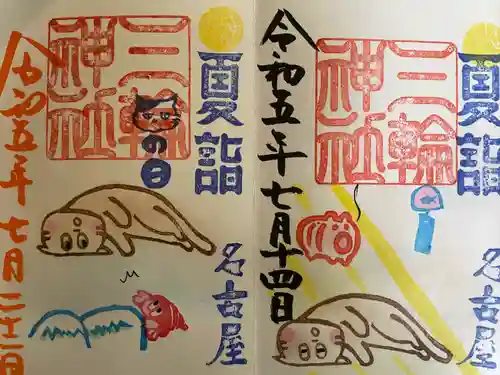 夏詣
名古屋
三輪
神社
令和五年七月十四日
夏詣
名古屋
三輪
神社
の日
令和五年七月二十二日